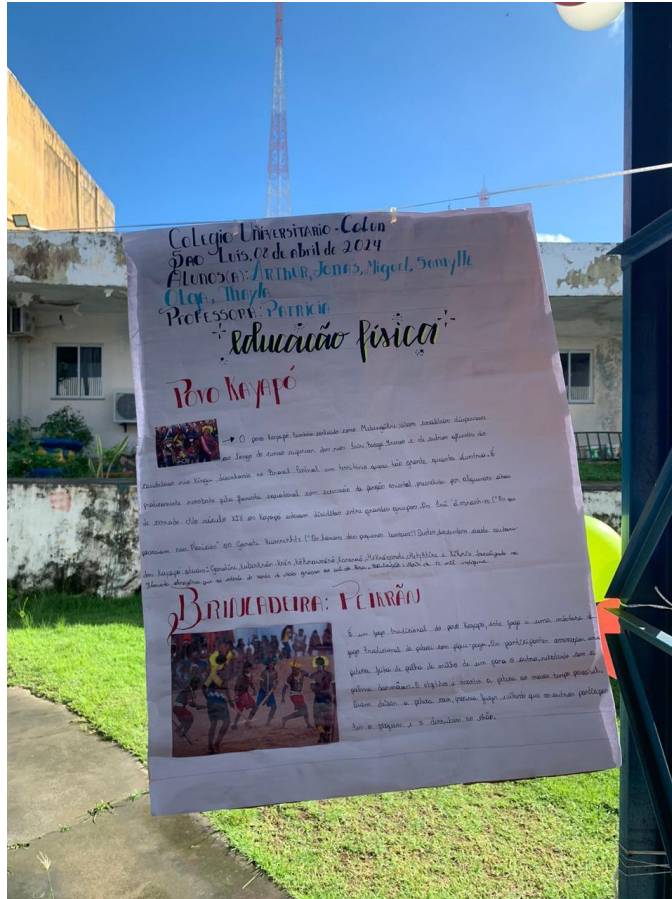 Colegio Universitario - Colun
São Luis, 02 de abril de 2024
Alunos(a): Arthur, Jonas, Miguel, Samylle
Olga, Thayla
Professora: Patricia
educação física
Povo Kayapó
→ O povo Kayapó, também conhecido como Mebengôkre, vivem em aldeias dispersas
ao longo do curso superior dos rios Iriri, Bacajá, Fresco e de outros afluentes do
caudaloso rio Xingu, desenhando no Brasil Central um território quase tão grande quanto a Áustria. É
praticamente recoberto pela floresta equatorial, com exceção da porção oriental, preenchida por algumas áreas
de cerrado. No século XIX os Kayapó estavam divididos em três grandes grupos, Os
passavam nas Planícies" os Gorotí Kumrenhtx ("Os homens dos pequenos
dos Kayapó atuais:
BRINCADEIRA: PEIKRÃN
É um jogo tradicional do povo Kayapó, este jogo é uma mistura do
jogo tradicional de peteca com pique-pega. Os participantes arremessam uma
peteca feita de palha de milho de um para o outro, rebatendo com as
palmas das mãos. O objetivo é manter a peteca no maior tempo possível.
Quem deixar a peteca cair, precisa fugir, evitando que os outros participan-
tes o peguem e o derrubem no chão.